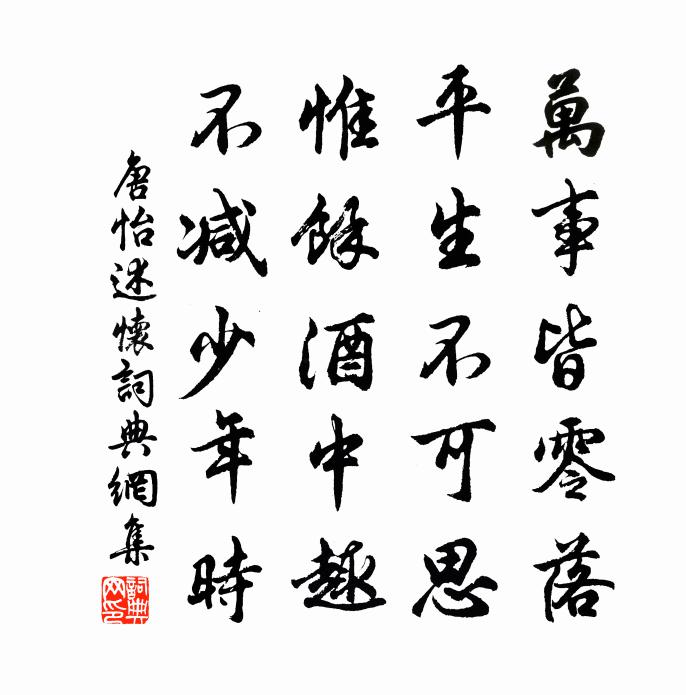 萬事皆零落
平生不可思
惟餘酒中趣
不減少年時
唐怡述懷詞典網集
詞典
网印